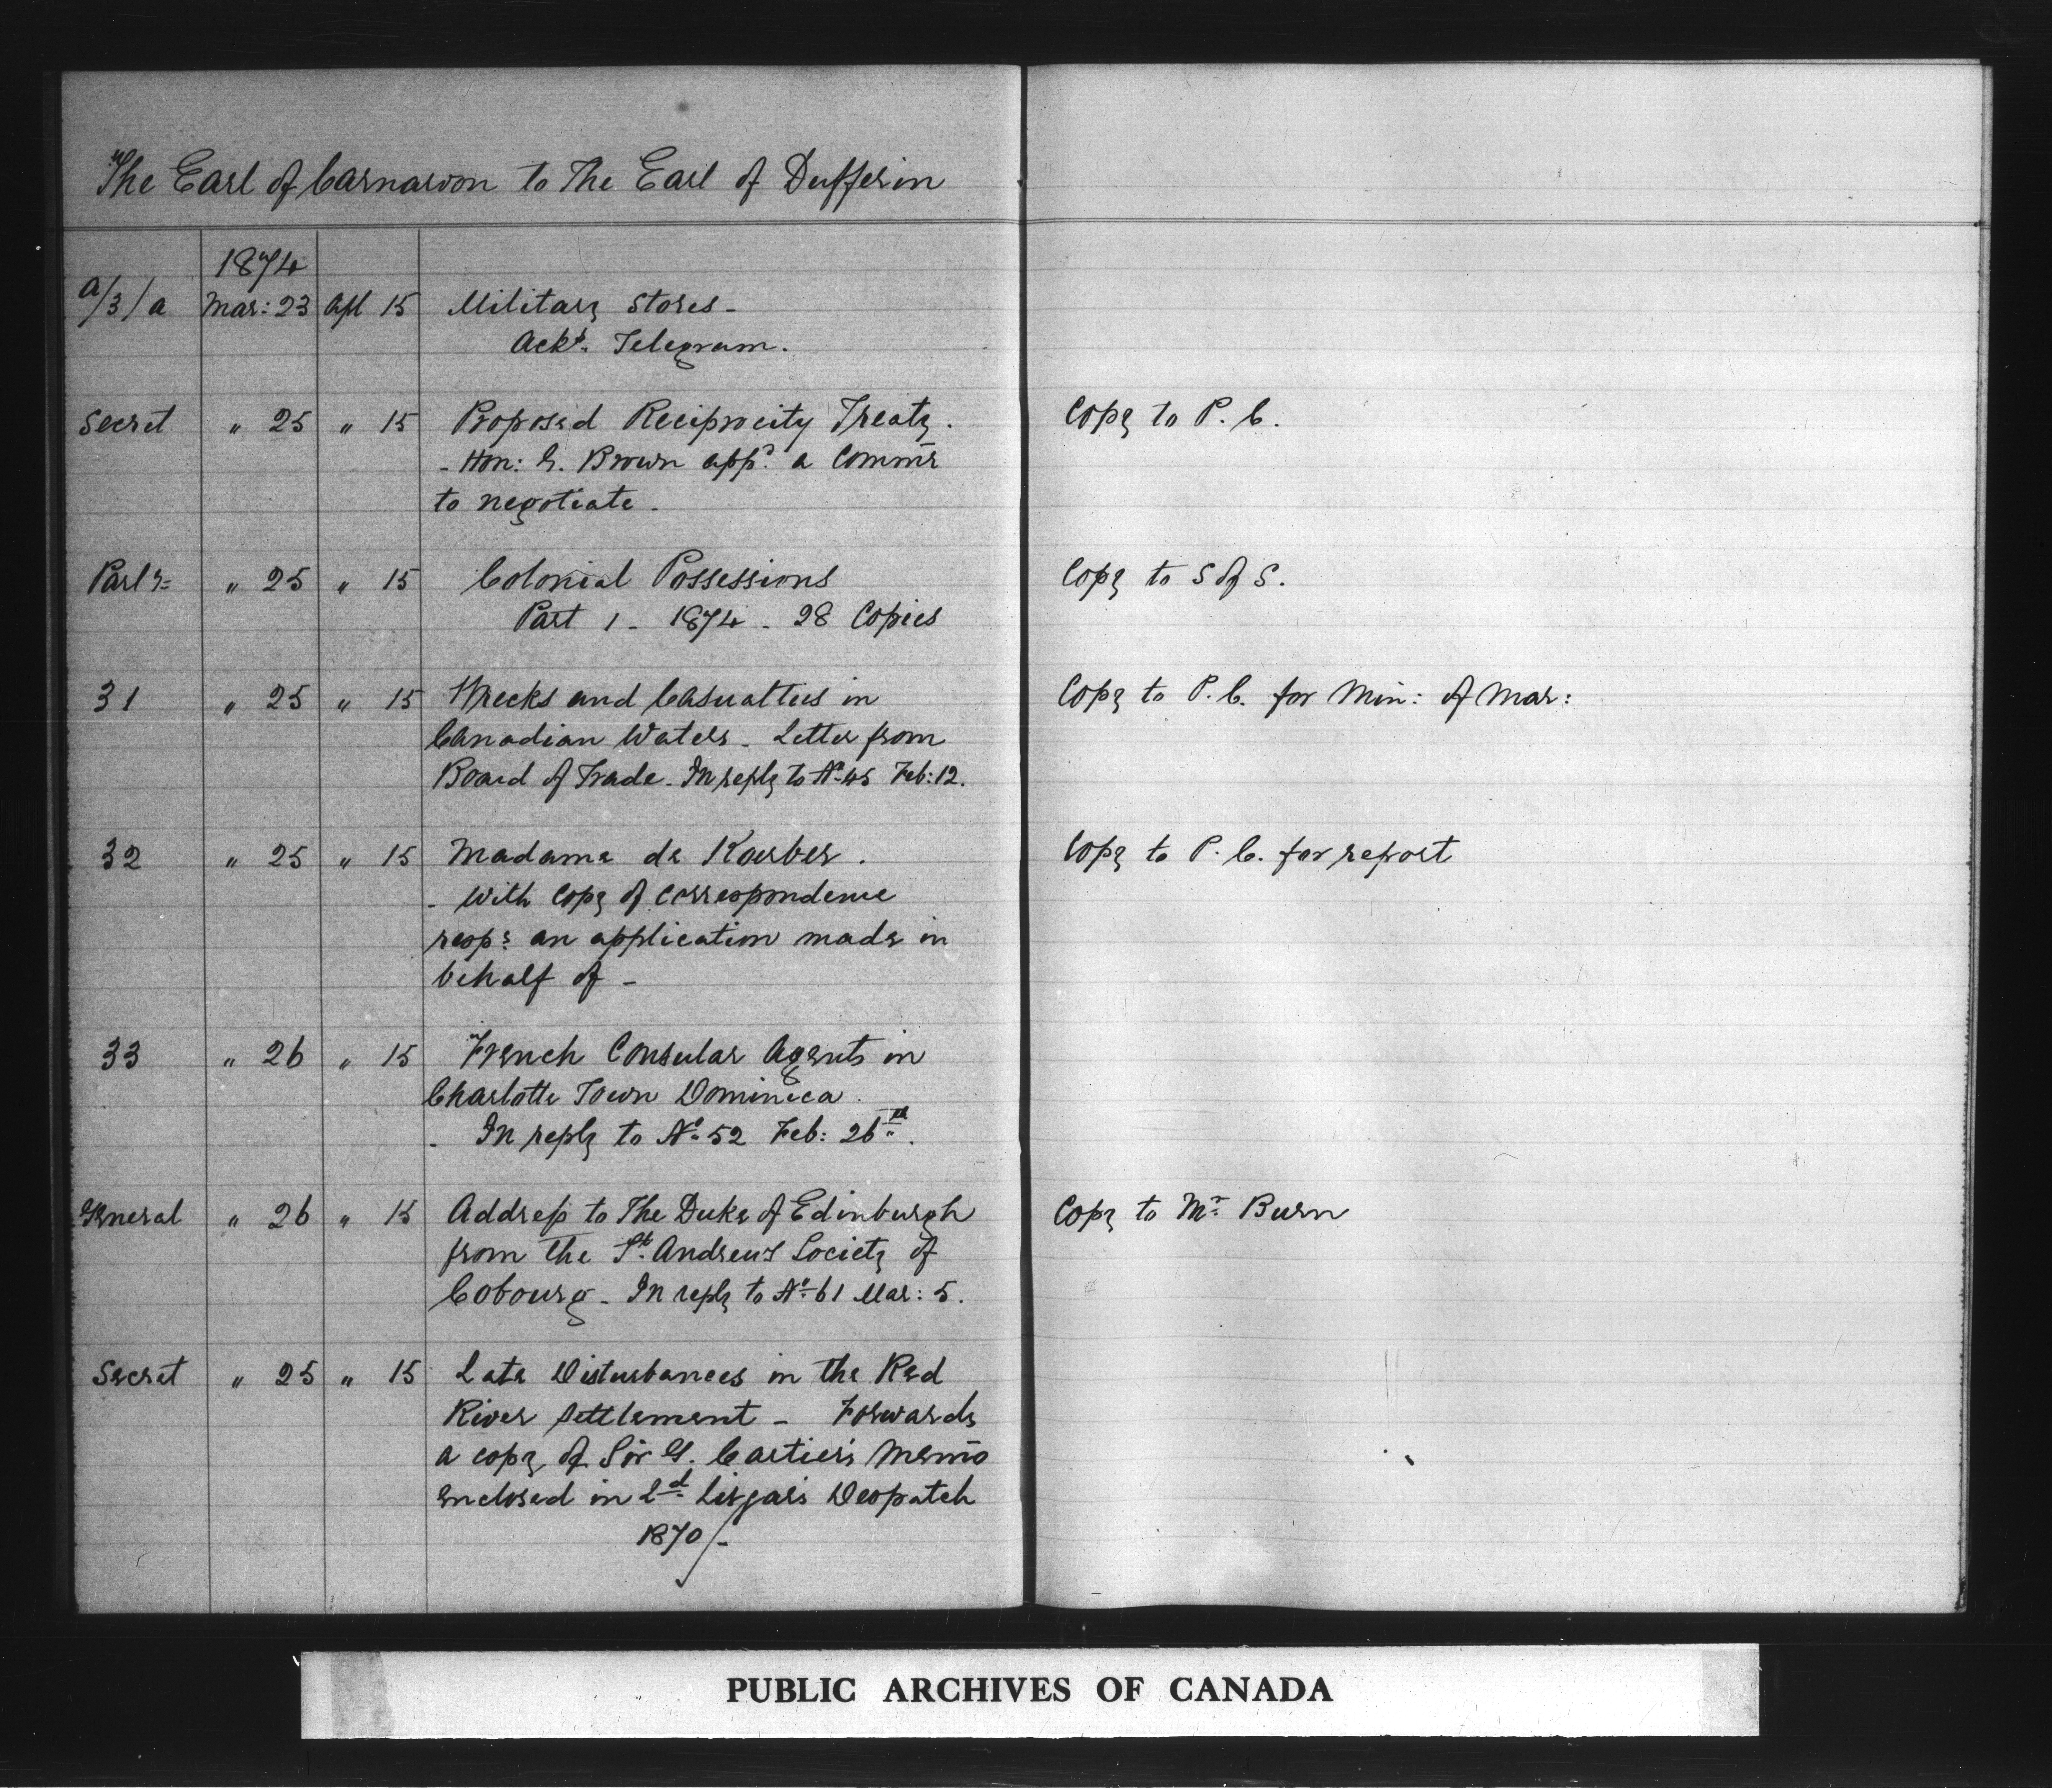 The Earl of Carnarvon to The Earl of Dufferin
1874
a/3/a Mar: 23 Apl 15 Military Stores -
Ackt. Telegram.
Secret " 25 " 15 Proposed Reciprocity Treaty. Copy to P. C.
- Hon: G. Brown appd. a Commr
to negotiate.
Parly " 25 " 15 Colonial Possessions Copy to S of S.
Part 1 - 1874 - 28 Copies
31 " 25 " 15 Wrecks and Casualties in Copy to P. C. for Min: of Mar:
Canadian Waters - Letter from
Board of Trade. In reply to No 45 Feb: 12.
32 " 25 " 15 Madame de Koerber. Copy to P. C. for report
- With Copy of Correspondence
resps an application made in
behalf of -
33 " 26 " 15 French Consular Agents in
Charlotte Town Dominica.
- In reply to No 52 Feb: 26th.
General " 26 " 15 Address to The Duke of Edinburgh Copy to Mr Burn
from the St. Andrews Society of
Cobourg - In reply to No 61 Mar: 5.
Secret " 25 " 15 Late Disturbances in the Red
River Settlement - Forwards
a copy of Sir G. Cartier's Memo
enclosed in Ld Lisgar's Despatch
1870/-
PUBLIC ARCHIVES OF CANADA